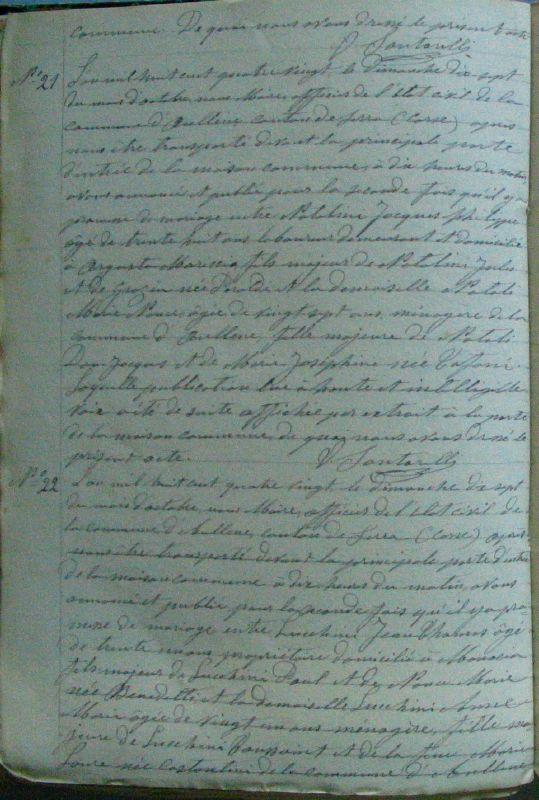 commune. De quoi nous avons dressé le présent acte
Santarelli
N° 21 L'an mil huit cent quatre vingt le dimanche dix sept
du mois d'octobre, nous Maire, officier de l'état civil de la
commune d'Aullene, canton de Serra (Corse) après
nous être transporté devant la principale porte
d'entrée de la maison commune, à dix heures du matin
avons annoncé et publié pour la seconde fois qu'il y a
promesse de mariage entre Natalini Jacques Philippe
âgé de trente huit ans laboureur demeurant et domicilié
à Argiusta Moriccio fils majeur de Natalini Jules
et de née et la demoiselle Natali
Marie âgée de vingt sept ans, ménagère de la
commune d'Aullene, fille majeure de Natali
Don Jacques et de Marie Joséphine née
laquelle publication lue à haute et intelligible
voix a été de suite affichée par extrait à la porte
de la maison commune, de quoi nous avons dressé le
présent acte.
Santarelli
N° 22 L'an mil huit cent quatre vingt, le dimanche dix sept
du mois d'octobre, nous Maire, officier de l'état civil de
la commune d'Aullene, canton de Serra (Corse) après
nous être transporté devant la principale porte d'entrée
de la maison commune à dix heures du matin, avons
annoncé et publié pour la seconde fois qu'il y a pro
messe de mariage entre Lucchini Jean âgé
de trente ans propriétaire domicilié à Monacia
fils majeur de Lucchini Paul et de Marie
née Benedetti et la demoiselle Lucchini Anne
Marie âgée de vingt un ans ménagère, fille ma
jeure de Lucchini Toussaint et de la feue Marie
Laure née de la commune d'Aullene